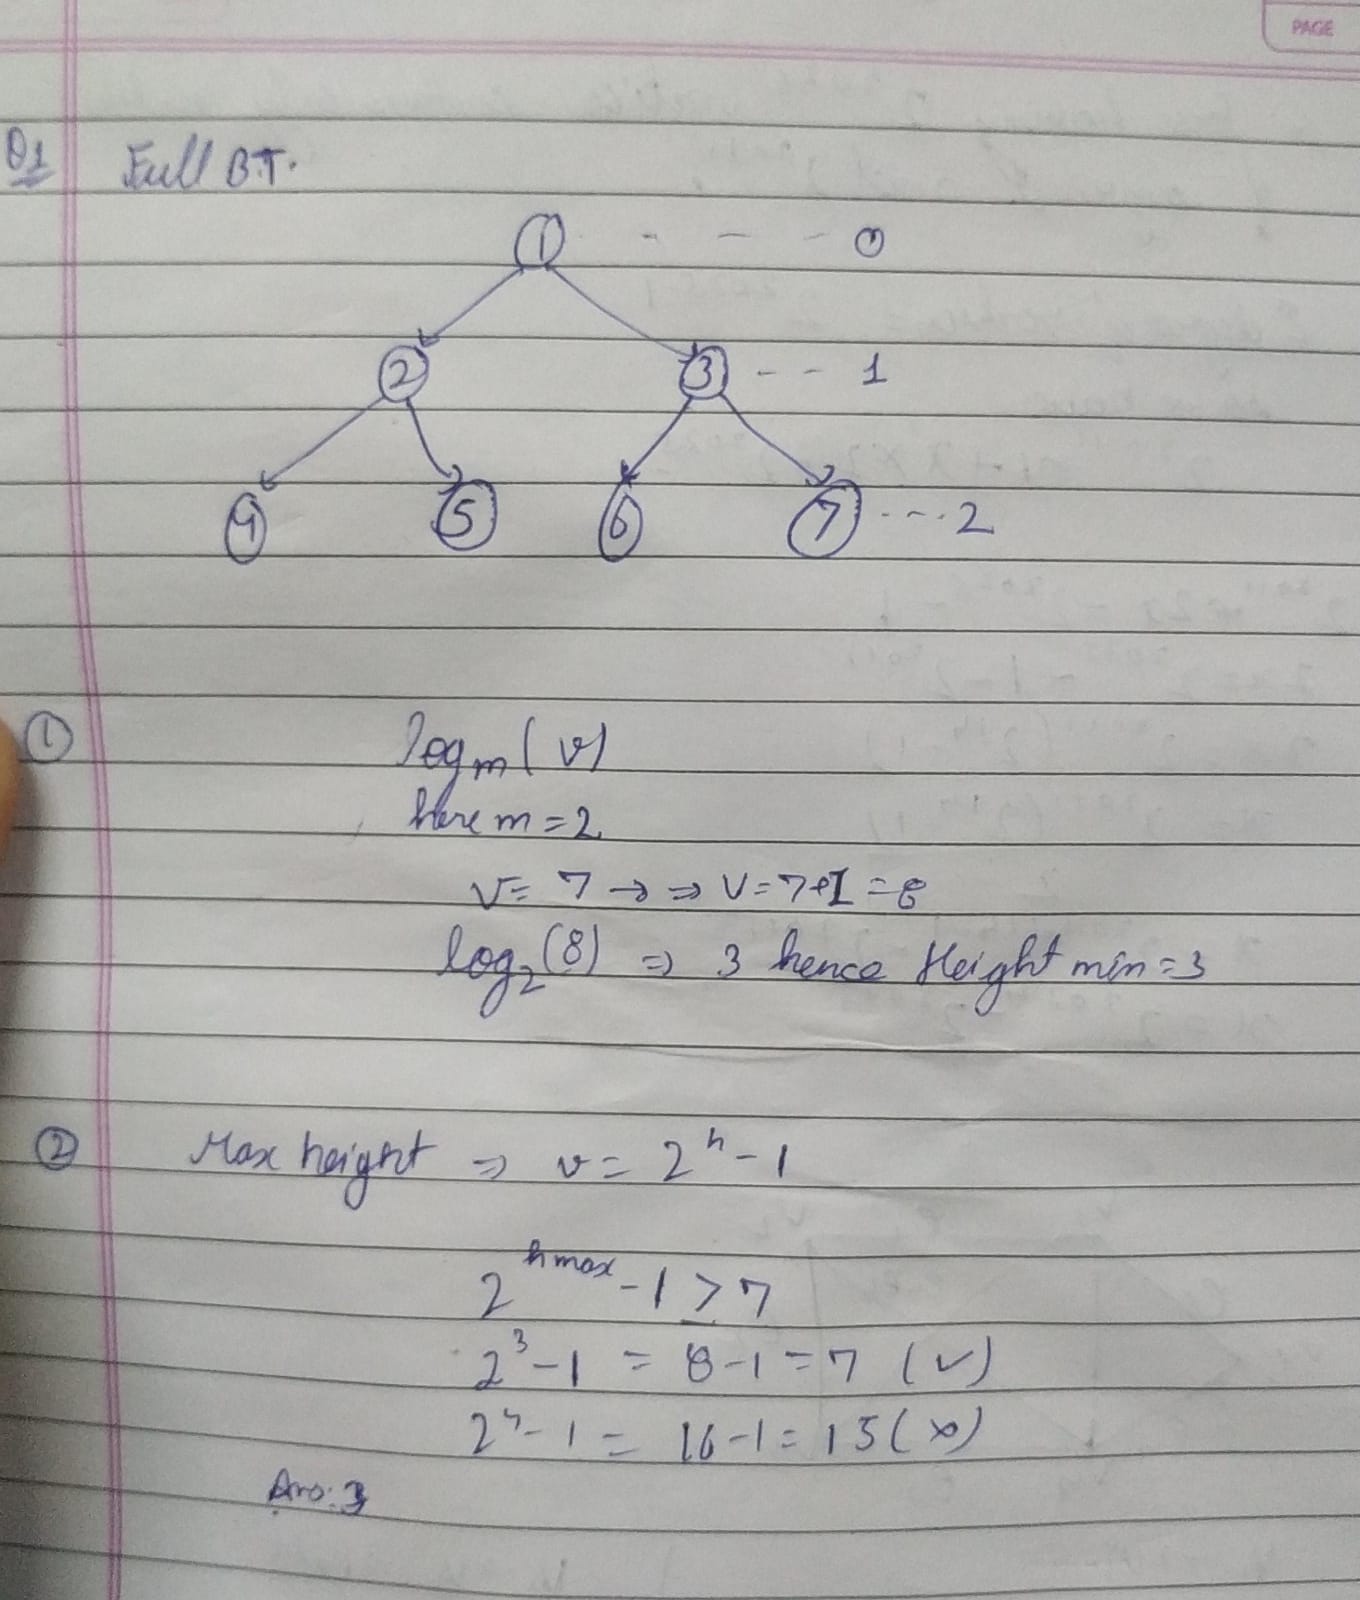 PAGE
Q1 Full B.T.
1 - - - 0
2 3 - - 1
4 5 6 7 - - - 2
① log_m (v)
here m = 2
v = 7 → ⇒ v = 7+1 = 8
log₂(8) ⇒ 3 hence Height min = 3
② Max height ⇒ v = 2^h - 1
2^hmax - 1 ≥ 7
2³ - 1 = 8 - 1 = 7 (✓)
2⁴ - 1 = 16 - 1 = 15 (×)
Ans: 3